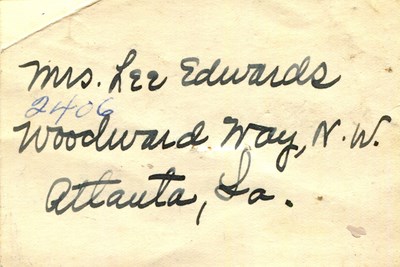 Mrs. Lee Edwards
2406
Woodward Way, N.W.
Atlanta, Ga.